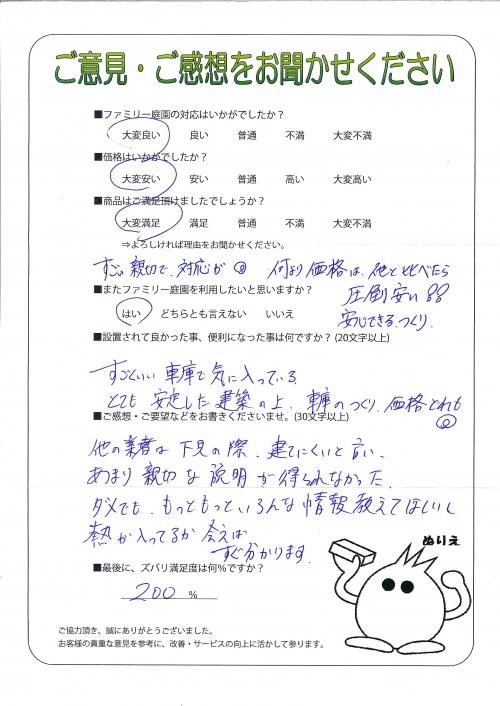 ご意見・ご感想をお聞かせください
■ファミリー庭園の対応はいかがでしたか？
大変良い　良い　普通　不満　大変不満
■価格はいかがでしたか？
大変安い　安い　普通　高い　大変高い
■商品はご満足頂けましたでしょうか？
大変満足　満足　普通　不満　大変不満
⇒よろしければ理由をお聞かせください。
すごい親切で、対応が◎　何より価格は、他と比べたら
圧倒安い!!
安心できるつくり。
■またファミリー庭園を利用したいと思いますか？
はい　どちらとも言えない　いいえ
■設置されて良かった事、便利になった事は何ですか？(20文字以上)
すごくいい車庫で気に入っている。
とても安定した建築の上、車庫のつくり、価格どれも◎
■ご感想・ご要望などをお書きくださいませ。(30文字以上)
他の業者は下見の際、建てにくいと言い、
あまり親切な説明が得られなかった。
ダメでも、もっともっといろんな情報教えてほしいし
熱が入ってるか会えば
すぐ分かります。
ぬりえ
■最後に、ズバリ満足度は何％ですか？
200 ％
ご協力頂き、誠にありがとうございました。
お客様の貴重な意見を参考に、改善・サービスの向上に活かして参ります。